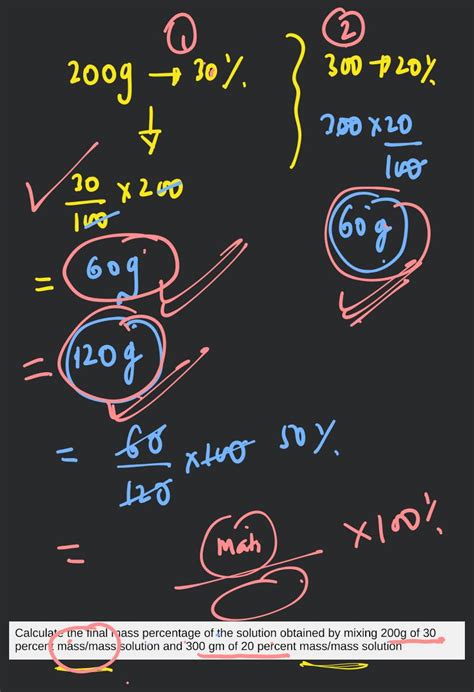 1
2
200g → 30%
300 → 20%
300 × 20
100
30
100
× 200
60g
= 60g
= 120g
= 60
120
× 100 50%
=
× 100%
Calculate the final mass percentage of the solution obtained by mixing 200g of 30
percent mass/mass solution and 300 gm of 20 percent mass/mass solution